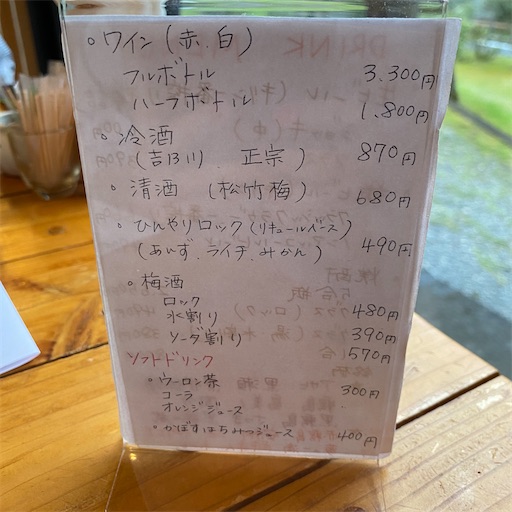 ○ ワイン(赤.白)
フルボトル 3.300円
ハーフボトル 1.800円
○ 冷酒
(吉乃川 . 正宗) 870円
○ 清酒 (松竹梅) 680円
○ ひんやりロック(リキュールベース)
(あんず.ライチ.みかん) 490円
○ 梅酒
ロック 480円
水割り 390円
ソーダ割り 570円
ソフトドリンク
○ ウーロン茶 300円
コーラ
オレンジジュース
○ かぼすはちみつジュース 400円